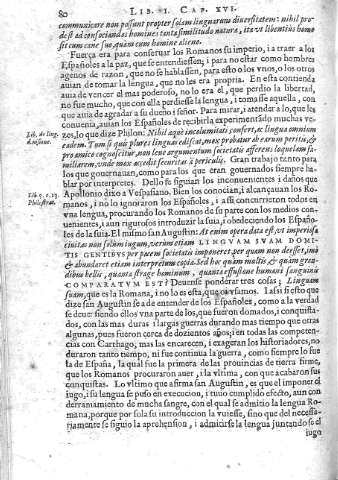 80 LIB. I. CAP. XVI.
communicare non possunt propter solam linguarum diuersitatem: nihil pro-
dest ad consociandos homines tanta similitudo naturæ, ita vt libentius homo
sit cum cane suo, quam cum homine alieno.
Fuerça era para conseruar los Romanos su imperio, i a traer a los
Españoles a la paz, que se entendiessen; i para no estar como hombres
agenos de razon, que no se hablassen, para esto o los vnos, o los otros
auian de tomar la lengua, que no les era propria. En esta contienda
auia de vencer el mas poderoso, no lo era el, que perdio la libertad,
no fue mucho, que con ella perdiesse la lengua, i tomasse aquella, con
que auia de agradar a su dueño i señor. Para mirar, i atender a lo, que les
conuenia, auian los Españoles de recibirla experimentado muchas ve-
zes, lo que dize Philon: Nihil æquè incolumitati confert, ac lingua omnium
eadem. Tum si quis plures linguas edidicit, mox probatur ab earum peritis, &
pro amico cognoscitur, non leue argumentum societatis afferens loquelam fa-
miliarem, vnde mox accedit securitas à periculis. Gran trabajo tanto para
los que gouernauan, como para los que eran gouernados siempre ha-
blar por interpretes. Dello se siguian los inconuenientes i daños que
Apollonio dixo a Vespasiano. Bien los conocian, i alcançauan los Ro-
manos, i no lo ignoraron los Españoles, i assi concurrieron todos en
vna lengua, procurando los Romanos de su parte con los medios con-
uenientes, i aun rigurosos introduzir la suia, i obedeciendo los Españo-
les de la suia. El mismo san Augustin: At enim opera data est, vt imperiosa
ciuitas non solùm iugum, verùm etiam LINGVAM SVAM DOMI-
TIS GENTIBVS per pacem societatis imponeret, per quam non deesset, imò
& abundaret etiam interpretum copia. Sed hæc quàm multis & quàm gran-
dibus bellis, quanta strage hominum, quanta effusione humani sanguinis
COMPARATVM EST? Deuense ponderar tres cosas; Linguam
suam, que es la Romana, i no lo es esta, que oi vsamos. La si esto que
dize san Augustin se a de entender de los Españoles, como a la verdad
se deue siendo ellos vna parte de los, que fueron domados, i conquista-
dos, con las mas duras i largas guerras durando mas tiempo que otras
algunas, pues fueron cerca de dozientos años, i en todas las competen-
cias con Carthago, mas las encarecen, i exageran los historiadores, no
duraron tanto tiempo, ni fue continua la guerra, como siempre lo fue
la de España, la qual fue la primera de las prouincias de tierra firme,
que los Romanos procuraron auer, i la vltima, con que acabaron sus
conquistas. Lo vltimo que afirma san Augustin, es que el imponer el
iugo, i su lengua se puso en execucion, i tuuo cumplido efecto, aun con
derramamiento de mucha sangre, con el qual se admitio la lengua Ro-
mana, porque por sola su introduccion la vuiesse, sino que del necessa-
riamente se siguio la aprehension, i admitirse la lengua juntando se el
iugo
Lib. de ling.
confusione.
Lib. 5. c. 13.
Philostrat.